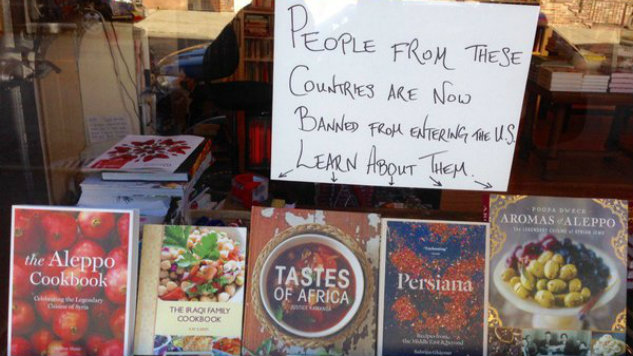 PEOPLE FROM THESE
COUNTRIES ARE NOW
BANNED FROM ENTERING THE U.S.
LEARN ABOUT THEM.
the Aleppo
Cookbook
Celebrating the Legendary
Cuisine of Syria
THE IRAQI FAMILY
COOKBOOK
TASTES
OF AFRICA
Persiana
Recipes from
the Middle East & Beyond
POOPA DWECK
AROMAS of ALEPPO
THE LEGENDARY CUISINE OF SYRIAN JEWS